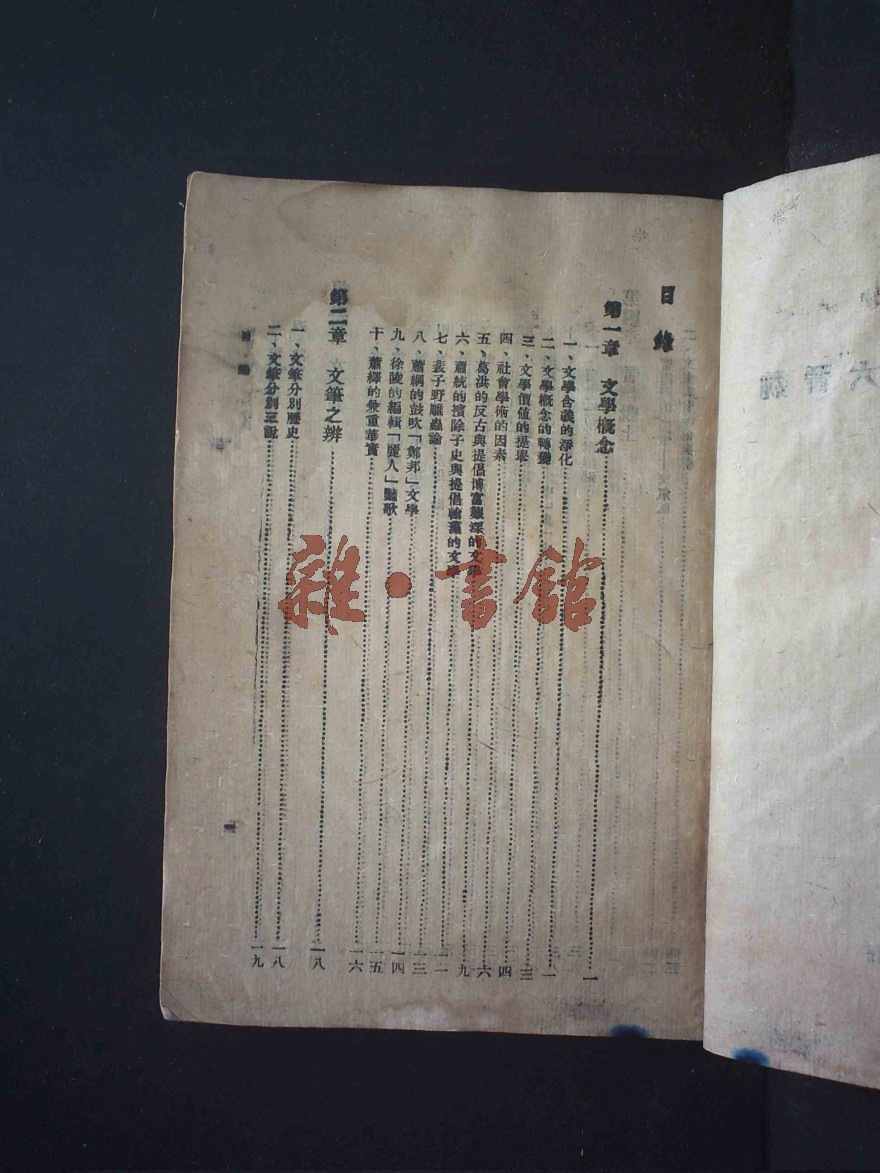 目錄
第一章 文學概念……一
一、文學含義的淨化……一
二、文學概念的轉變……三
三、文學價值的提舉……四
四、社會學術的因素……六
五、葛洪的反古與提倡博富艱深的文學……九
六、蕭統的擯除子史與提倡翰藻的文學……一二
七、裴子野雕蟲論……一三
八、蕭綱的鼓吹「鄭邦」文學……一四
九、徐陵的編輯「麗人」豔歌……一五
十、蕭繹的兼重華實……一六
第二章 文筆之辨……一八
一、文筆分別歷史……一八
二、文筆分別三說……一九
目錄
一
魏晉六
雜·書館